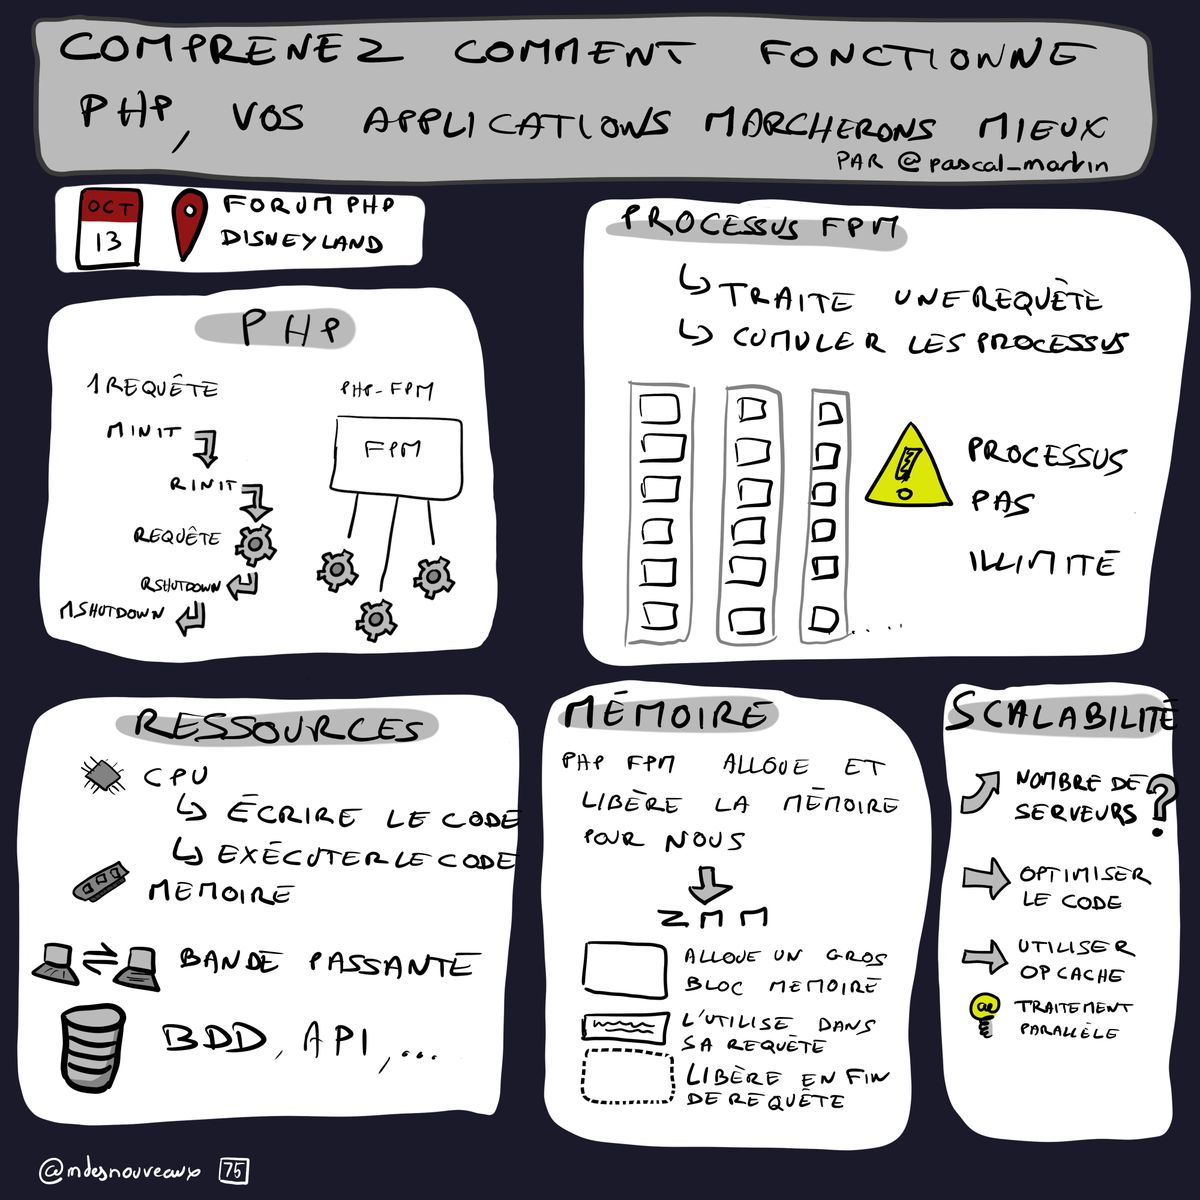 COMPRENEZ COMMENT FONCTIONNE
PHP, VOS APPLICATIONS MARCHERONS MIEUX
PAR @pascal_martin
OCT
13
FORUM PHP
DISNEYLAND
PHP
1 REQUÊTE
MINIT
RINIT
REQUÊTE
RSHUTDOWN
MSHUTDOWN
PHP-FPM
FPM
PROCESSUS FPM
TRAITE UNE REQUÊTE
CUMULER LES PROCESSUS
!
PROCESSUS
PAS
ILLIMITÉ
RESSOURCES
CPU
ÉCRIRE LE CODE
EXÉCUTER LE CODE
MEMOIRE
BANDE PASSANTE
BDD, API,...
MÉMOIRE
PHP FPM ALLOUE ET
LIBÈRE LA MÉMOIRE
POUR NOUS
ZMM
ALLOUE UN GROS
BLOC MEMOIRE
L'UTILISE DANS
SA REQUÊTE
LIBÈRE EN FIN
DE REQUÊTE
SCALABILITÉ
NOMBRE DE
SERVEURS ?
OPTIMISER
LE CODE
UTILISER
OPCACHE
TRAITEMENT
PARALLÈLE
@mdesnouveaux 75